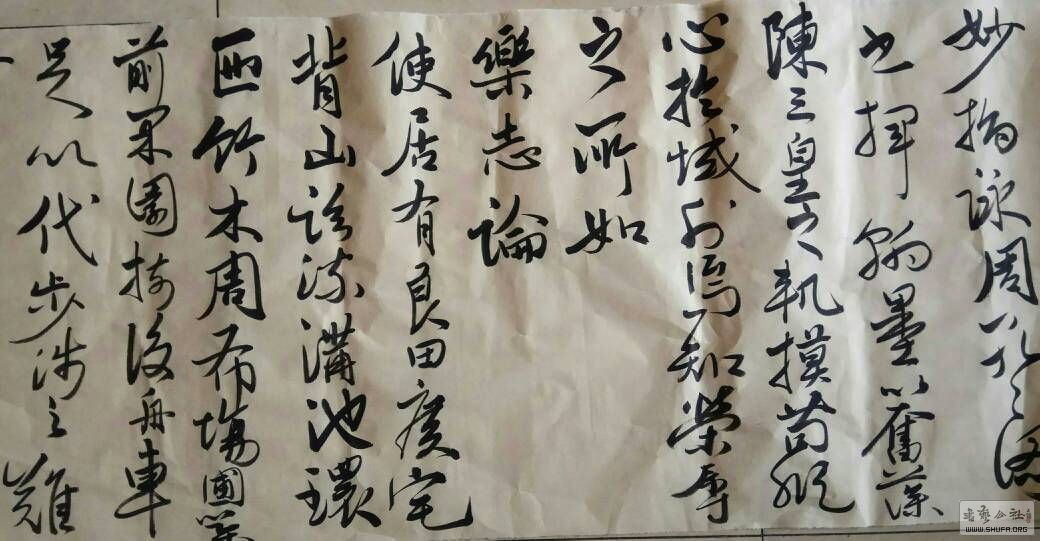 妙指詠周孔之圖
書揮翰墨以奮藻
陳三皇之軌摸苟縱
心於域外焉知榮辱
之所如
樂志論
使居有良田廣宅
背山臨流溝池環
匝竹木周布場圃築
前果園樹後舟車
足以代步涉之難
书艺公社
WWW.SHUFA.ORG